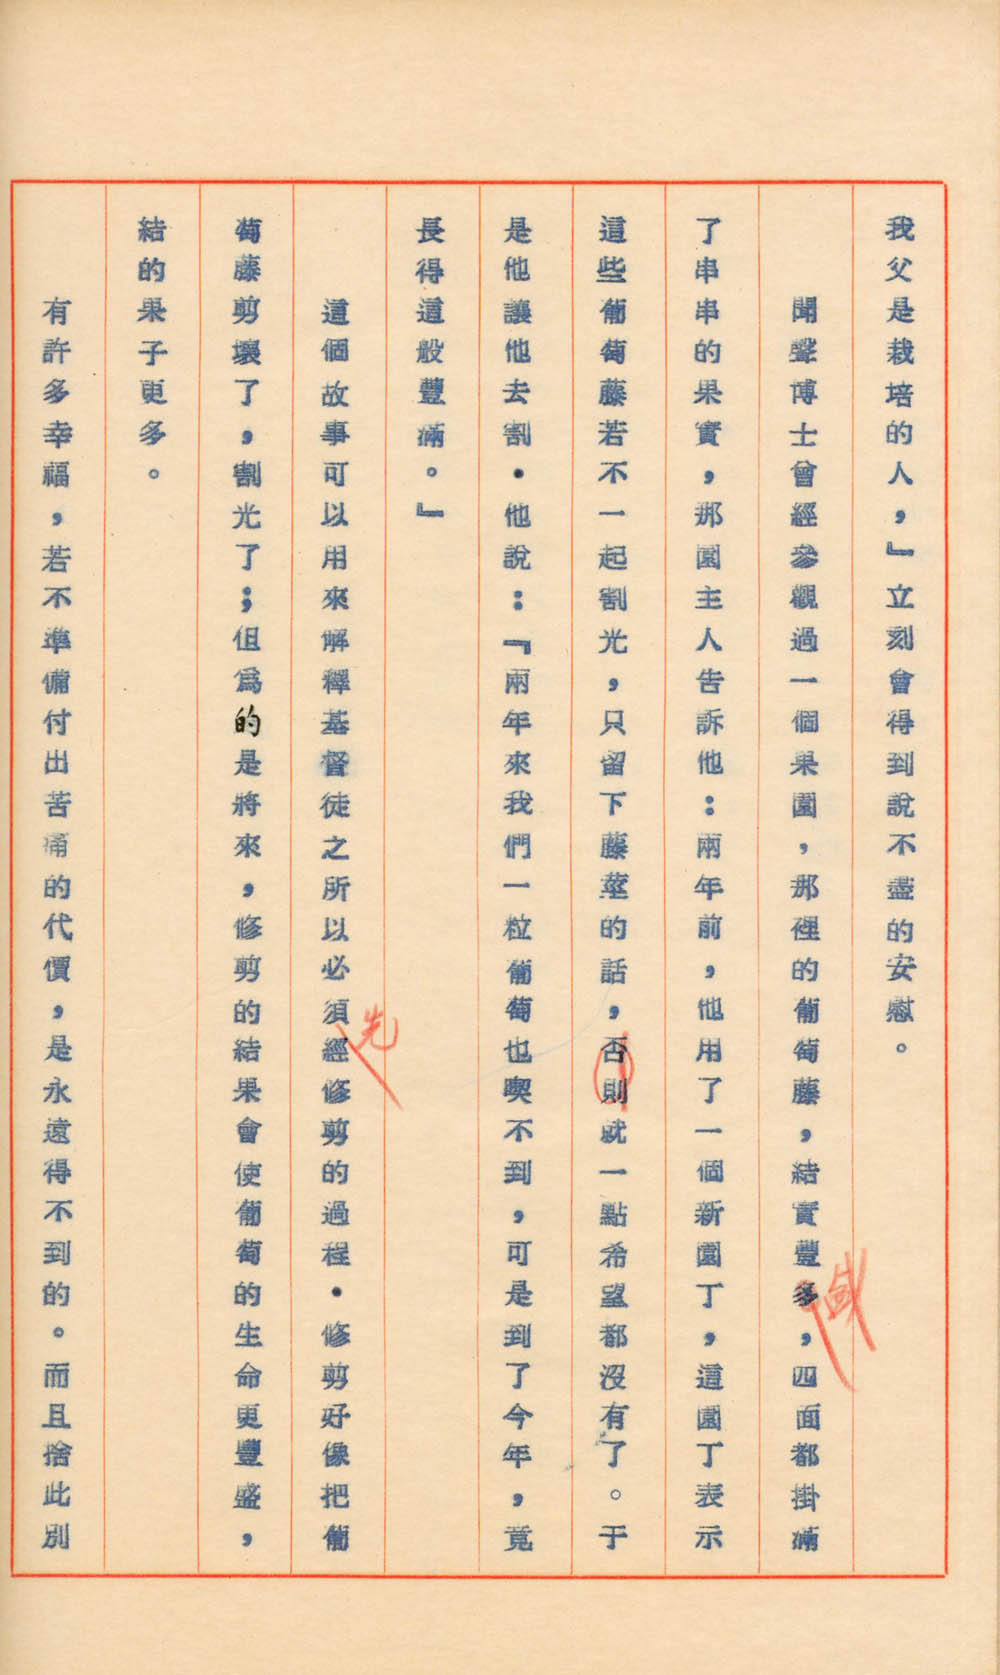 我父是栽培的人，』立刻會得到說不盡的安慰。
聞聲博士曾經參觀過一個果園，那裡的葡萄藤，結實豐多，四面都掛滿
盛
了串串的果實，那園主人告訴他：兩年前，他用了一個新園丁，這園丁表示
這些葡萄藤若不一起割光，只留下藤莖的話，否則就一點希望都沒有了。于
是他讓他去割．他說：『兩年來我們一粒葡萄也喫不到，可是到了今年，竟
長得這般豐滿。』
這個故事可以用來解釋基督徒之所以必須經修剪的過程．修剪好像把葡
先
萄藤剪壞了，割光了；但爲的是將來，修剪的結果會使葡萄的生命更豐盛，
結的果子更多。
有許多幸福，若不準備付出苦痛的代價，是永遠得不到的。而且捨此別